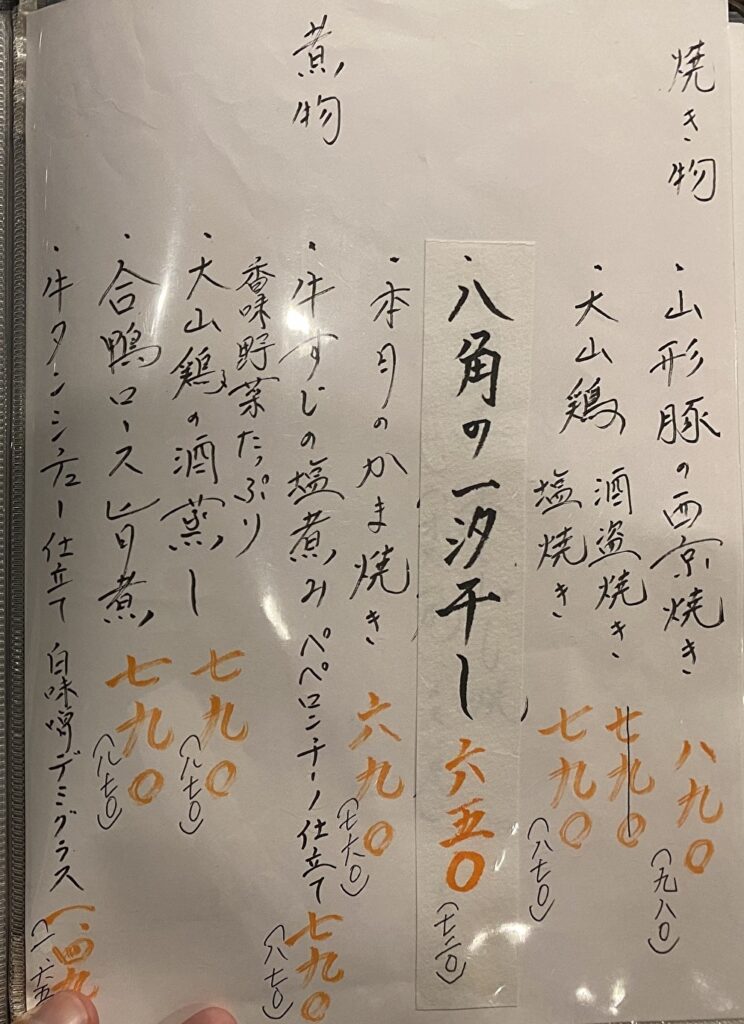 焼き物
・山形豚の西京焼き 八九〇 (九八〇)
・大山鶏 酒盗焼き 七九〇
塩焼き 七九〇 (八七〇)
・八角の一汐干し 六五〇 (七二〇)
・本日のかま焼き 六九〇 (七六〇)
煮物
・牛すじの塩煮み ペペロンチーノ仕立て 七九〇 (八七〇)
香味野菜たっぷり
・大山鶏の酒蒸し 七九〇 (八七〇)
・合鴨ロース旨煮 七九〇 (八七〇)
・牛タンシチュー仕立て 白味噌デミグラス 一.四九